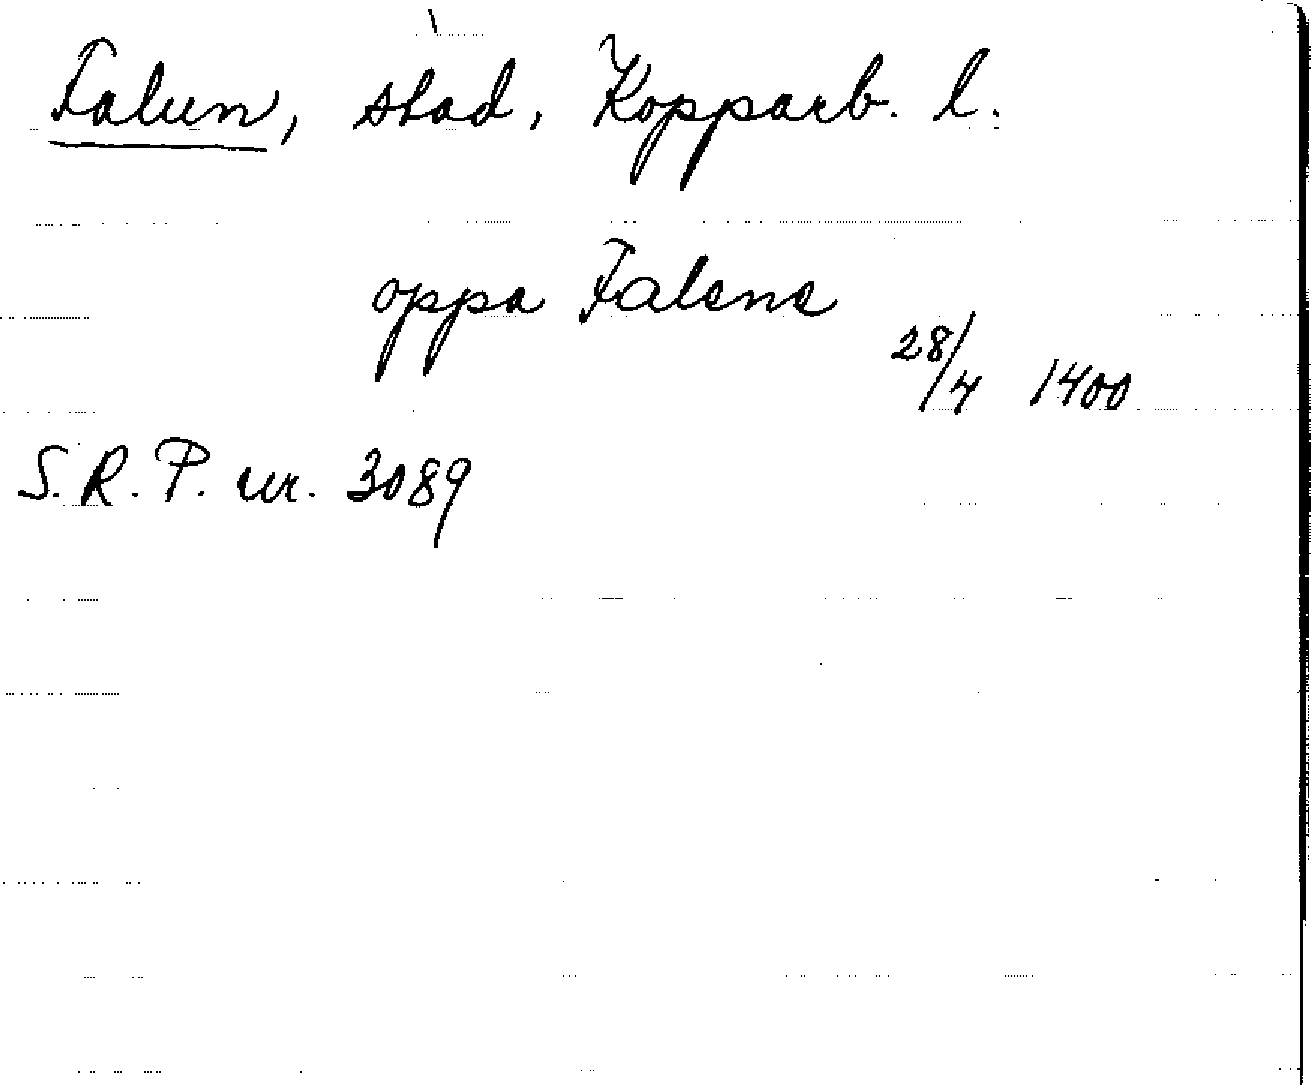 Falun, stad, Kopparb. l.
oppa Falene
28/4 1400
S. R. P. nr. 3089